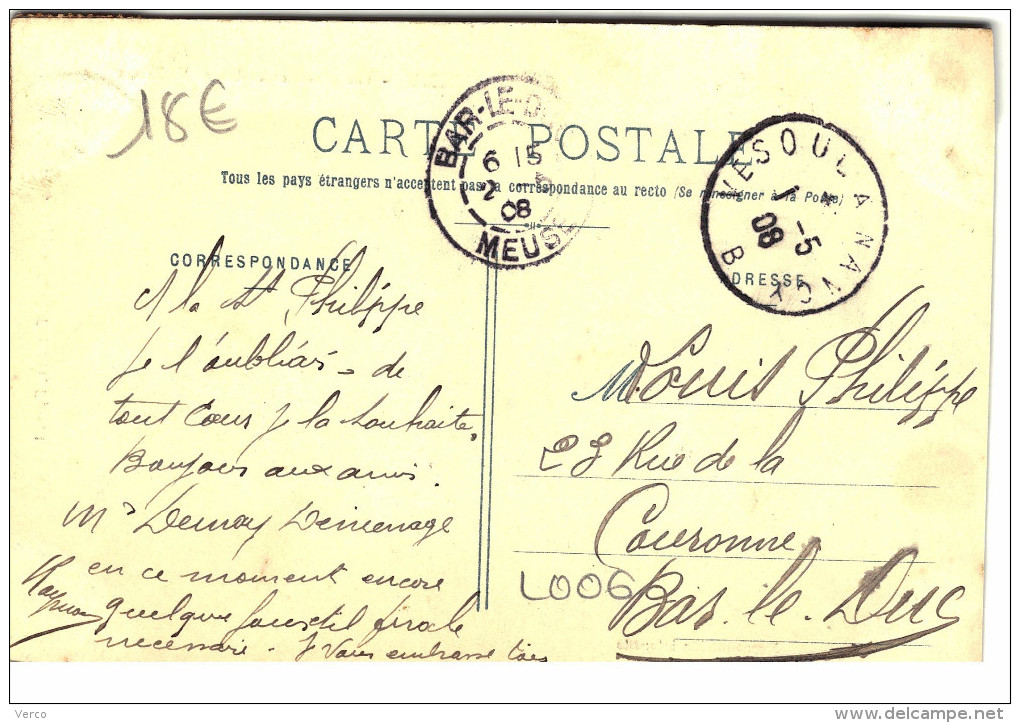 18€
CARTE POSTALE
Tous les pays étrangers n'acceptent pas la correspondance au recto (Se renseigner à la Poste)
BAR-LE-D
6 15
2 5
08
MEUSE
VESOUL A NANCY
1 -5
08
B
CORRESPONDANCE
ADRESSE
A la St Philippe
Je l'oubliais de
tout Coeur je la souhaite,
Bonjour aux amis.
Mr Demay Déménage
en ce moment encore
quelque
necessaire. Je Vous embrasse tous
M. Louis Philippe
23 Rue de la
Couronne
Bar-le-Duc
L006
Verco
delcampe.net